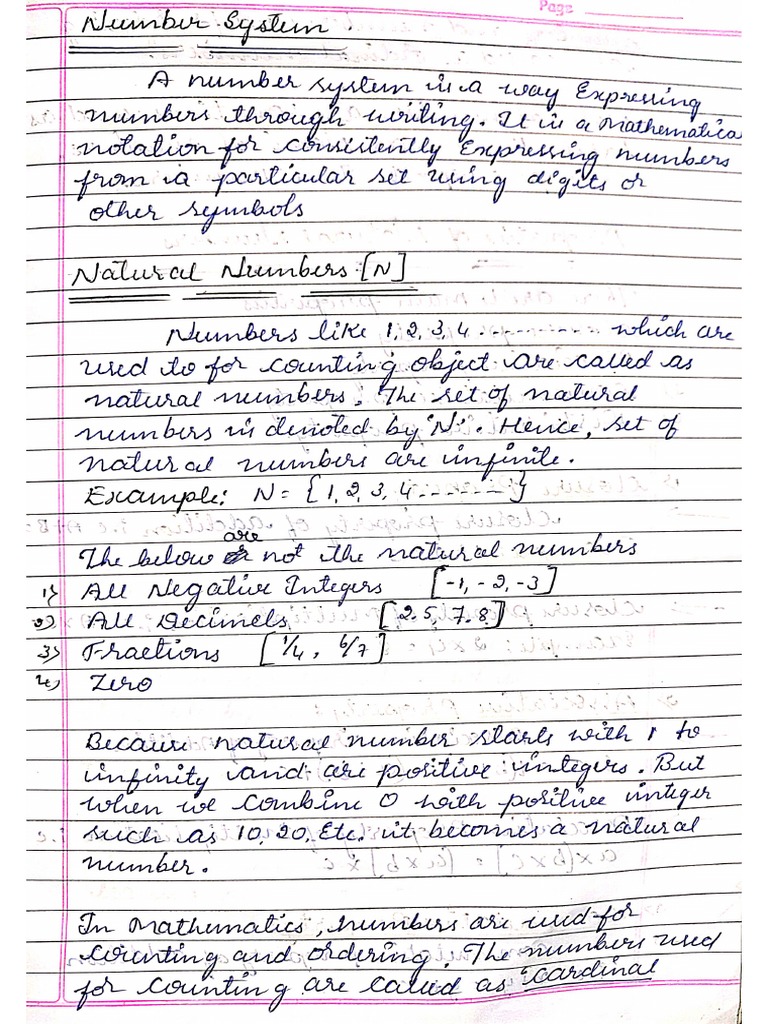 Page
Number System
A number system is a way Expressing
numbers through writing. It is a Mathematica
notation for consistently Expressing numbers
from a particular set using digits or
other symbols
Natural Numbers [N]
Numbers like 1, 2, 3, 4 ------------ which are
used to for counting object are called as
natural numbers. The set of natural
numbers is denoted by 'N'. Hence, set of
natural numbers are infinite.
Example: N = { 1, 2, 3, 4 ------- }
The below are not the natural numbers
1) All Negative Integers [-1, -2, -3]
2) All Decimels [2.5, 7.8]
3) Fractions [1/4, 6/7]
4) Zero
Because natural number starts with 1 to
infinity and are positive integers. But
when we combine 0 with positive integer
such as 10, 20, Etc. it becomes a natural
number.
In Mathematics, numbers are used for
counting and ordering. The numbers used
for counting are called as "cardinal